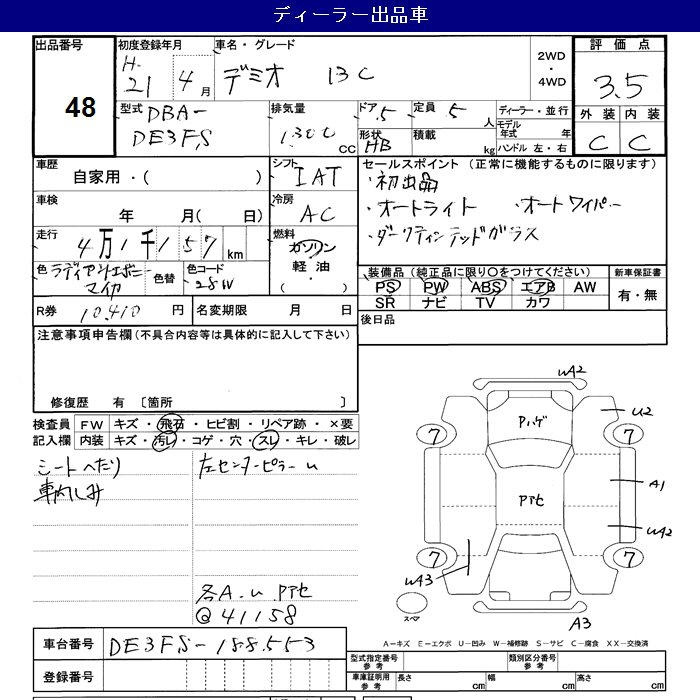 ディーラー出品車
出品番号 48
初度登録年月 H. 21年 4月
車名・グレード デミオ 13C
2WD ・ 4WD
評価点 3.5
外装 内装
C C
型式 DBA-DE3FS
排気量 1300 CC
ドア 5 定員 5 人
形状 HB 積載 kg
ディーラー・並行
モデル年式 年
ハンドル 左・右
車歴 自家用・( )
シフト IAT
セールスポイント (正常に機能するものに限ります)
・初出品
・オートライト ・オートワイパー
・ダークティンテッドガラス
車検 年 月( 日)
冷房 AC
走行 4万1千157 km
燃料 ガソリン
軽油・
( )
色 ラディアントエボニーマイカ
色替
色コード 28W
装備品 (純正品に限り○をつけてください)
新車保証書
PS PW ABS エアB AW
有・無
SR ナビ TV カワ
R券 10,410 円
名変期限 月 日
後日品
注意事項申告欄 (不具合内容等は具体的に記入して下さい)
修復歴 有 〔箇所 〕
検査員記入欄
FW キズ・飛石・ヒビ割・リペア跡・×要
内装 キズ・汚レ・コゲ・穴・スレ・キレ・破レ
シートへたり
車内しみ
左センターピラー u
各A.u.Pアセ
@41158
WA2
U2
Pハゲ
7 7
Pアセ
A1
WA2
7 7
WA3
スペア
A3
A-キズ E-エクボ U-凹み W-補修跡 S-サビ C-腐食 XX-交換済
車台番号 DE3FS-188553
登録番号
型式指定番号 参考
類別区分番号 参考
車庫証明用 参考
長さ cm 幅 cm 高さ cm